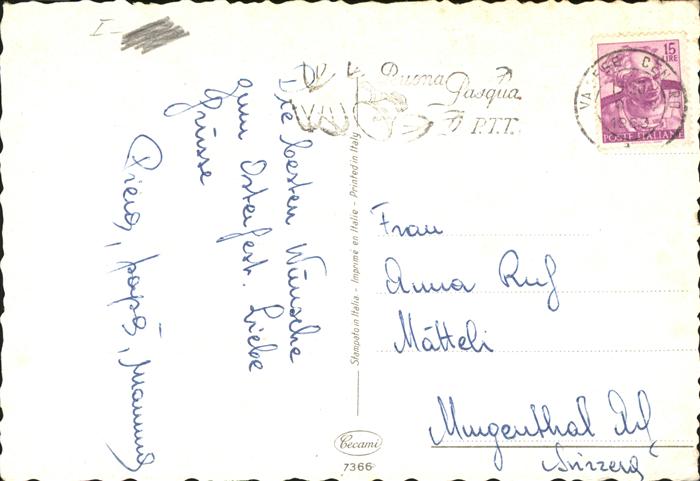 I -
Die besten Wünsche
zum Osterfest. Liebe
Grüsse
Piero, papà, mamma
Buona
Pasqua
P.T.T.
15
LIRE
POSTE ITALIANE
VARESE CENTRO
Stampato in Italia - Imprimé en Italie - Printed in Italy
Frau
Anna Ruf
Mätteli
Murgenthal
Svizzera
Cecami
7366